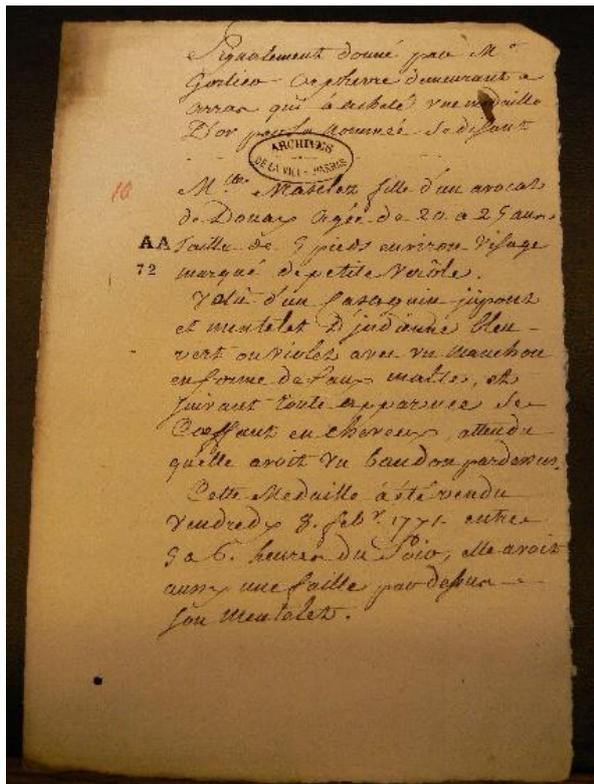 Signalement donné par Mr
Gorlier orphevre demeurant a
arras qui a acheté une medaille
D'or par la nommée se disant
ARCHIVES
DE LA VILLE ARRAS
10
Mlle fille d'un avocat
de Douay agée de 20 a 25 ans
AA
Taille de 5 pieds environ visage
72
marqué de petite verôle.
Vetû d'un casaquin jupons
et mentelet d'indienne bleu
vert ou violet avec un manchon
en forme de faux, et
suivant toute apparence se
Coeffant en cheveux, attendu
quelle avoit un bandon pardessus.
Cette Medaille a été vendu
Vendredy 8. febr. 1771. entre
5 a 6. heures du Soir, elle avoit
aussy une faille par dessus
son mentelet.